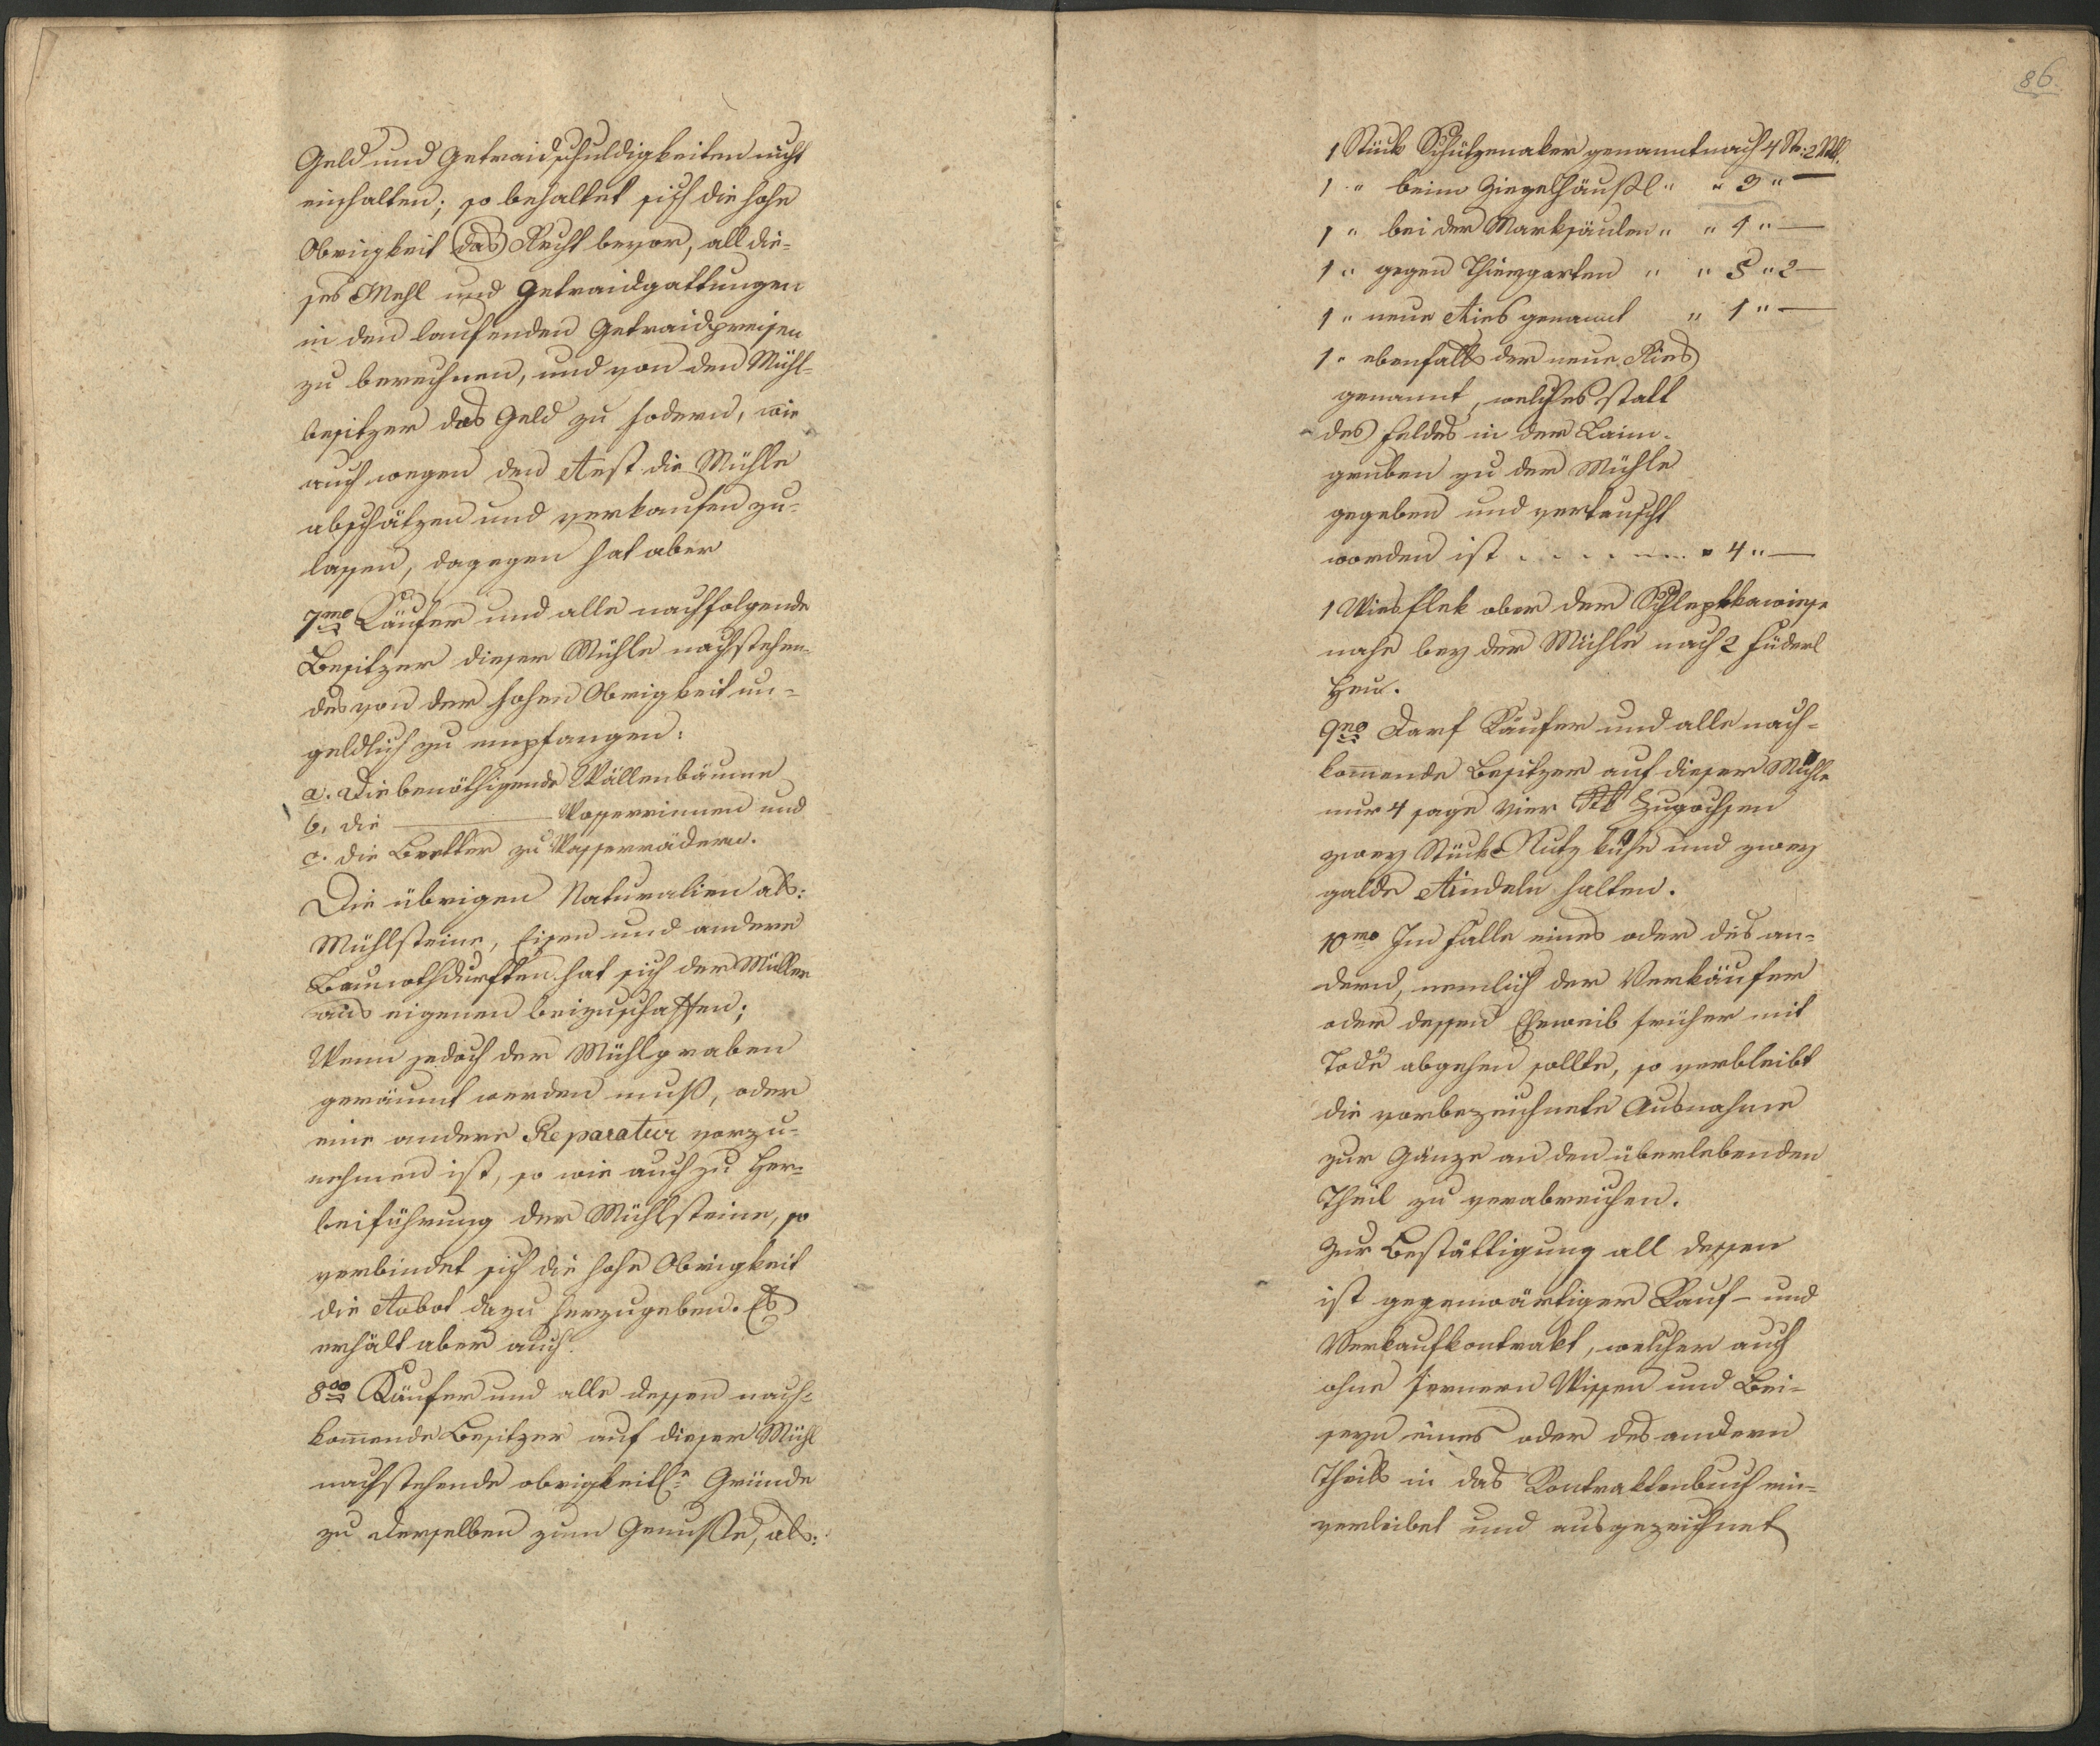 Geld und Getraidschuldigkeiten nicht
einhalten; so behaltet sich die hohe
Obrigkeit das Recht bevor, all die-
ses Mehl und Getraidgattungen
in den laufenden Getraidpreisen
zu berechnen, und von den Mühl-
besitzer das Geld zu fodern, wie
auch wegen den Rest die Mühle
abschätzen und verkaufen zu-
lassen, dagegen hat aber
7mo Käufer und alle nachfolgende
Besitzer dieser Mühle nachstehen-
des von der hohen Obrigkeit un-
geldlich zu empfangen:
a. Die benöthigende Wällenbäume
b. die ———— Wasserrinnen und
c. die Bretter zu Wasserrädern.
Die übrigen Naturalien als:
Mühlsteine, Eisen und andere
Baunothdurften hat sich der Müller
aus eigenen beizuschaffen;
Wenn jedoch der Mühlgraben
geräumt werden muß, oder
eine andere Reparatur vorzu-
nehmen ist, so wie auch zu Her-
beiführung der Mühlsteine, so
verbindet sich die hohe Obrigkeit
die Robot dazu herzugeben. Es
erhält aber auch.
8vo Käufer und alle dessen nach-
kommende Besitzer auf dieser Mühl
nachstehende obrigkeitl. Gründe
zu derselben zum Genusse, als:
86
1 Stück Schützenaker genannt nach 4 St. 2 Mtl.
1 " beim Ziegelhäußl " " 3 " —
1 " bei der Marksäulen " " 4 " —
1 " gegen Thiergarten " " 5 " 2 —
1 " neue Ries genannt " 1 " —
1 " ebenfalls der neue Ries
genannt, welches statt
des Feldes in der Laim-
gruben zu der Mühle
gegeben und vertauscht
worden ist . . . . . . . " 4 " —
1 Wiesflek ober der wiese
nahe bey der Mühle nach 2 Füderl
Heu.
9no Darf Käufer und alle nach-
kommende Besitzer auf dieser Mühle
nur 4 sage vier Stk Zugochsen
zwey Stücke Nutz kühe und zwey
galde Rindeln halten.
10mo Im Falle eines oder des an-
dern, nemlich der Verkäufer
oder dessen Eheweib früher mit
Tode abgehen sollte, so verbleibt
die vorbezeichnete Ausnahme
zur Gänze an den überlebenden
Theil zu verabreichen.
Zur Bestättigung all dessen
ist gegenwärtiger Kauf- und
Verkaufkontrakt, welcher auch
ohne fernern Wissen und Bei-
seyn eines oder des andern
Theils in das Kontraktenbuch ein-
verleibet und ausgezeichnet